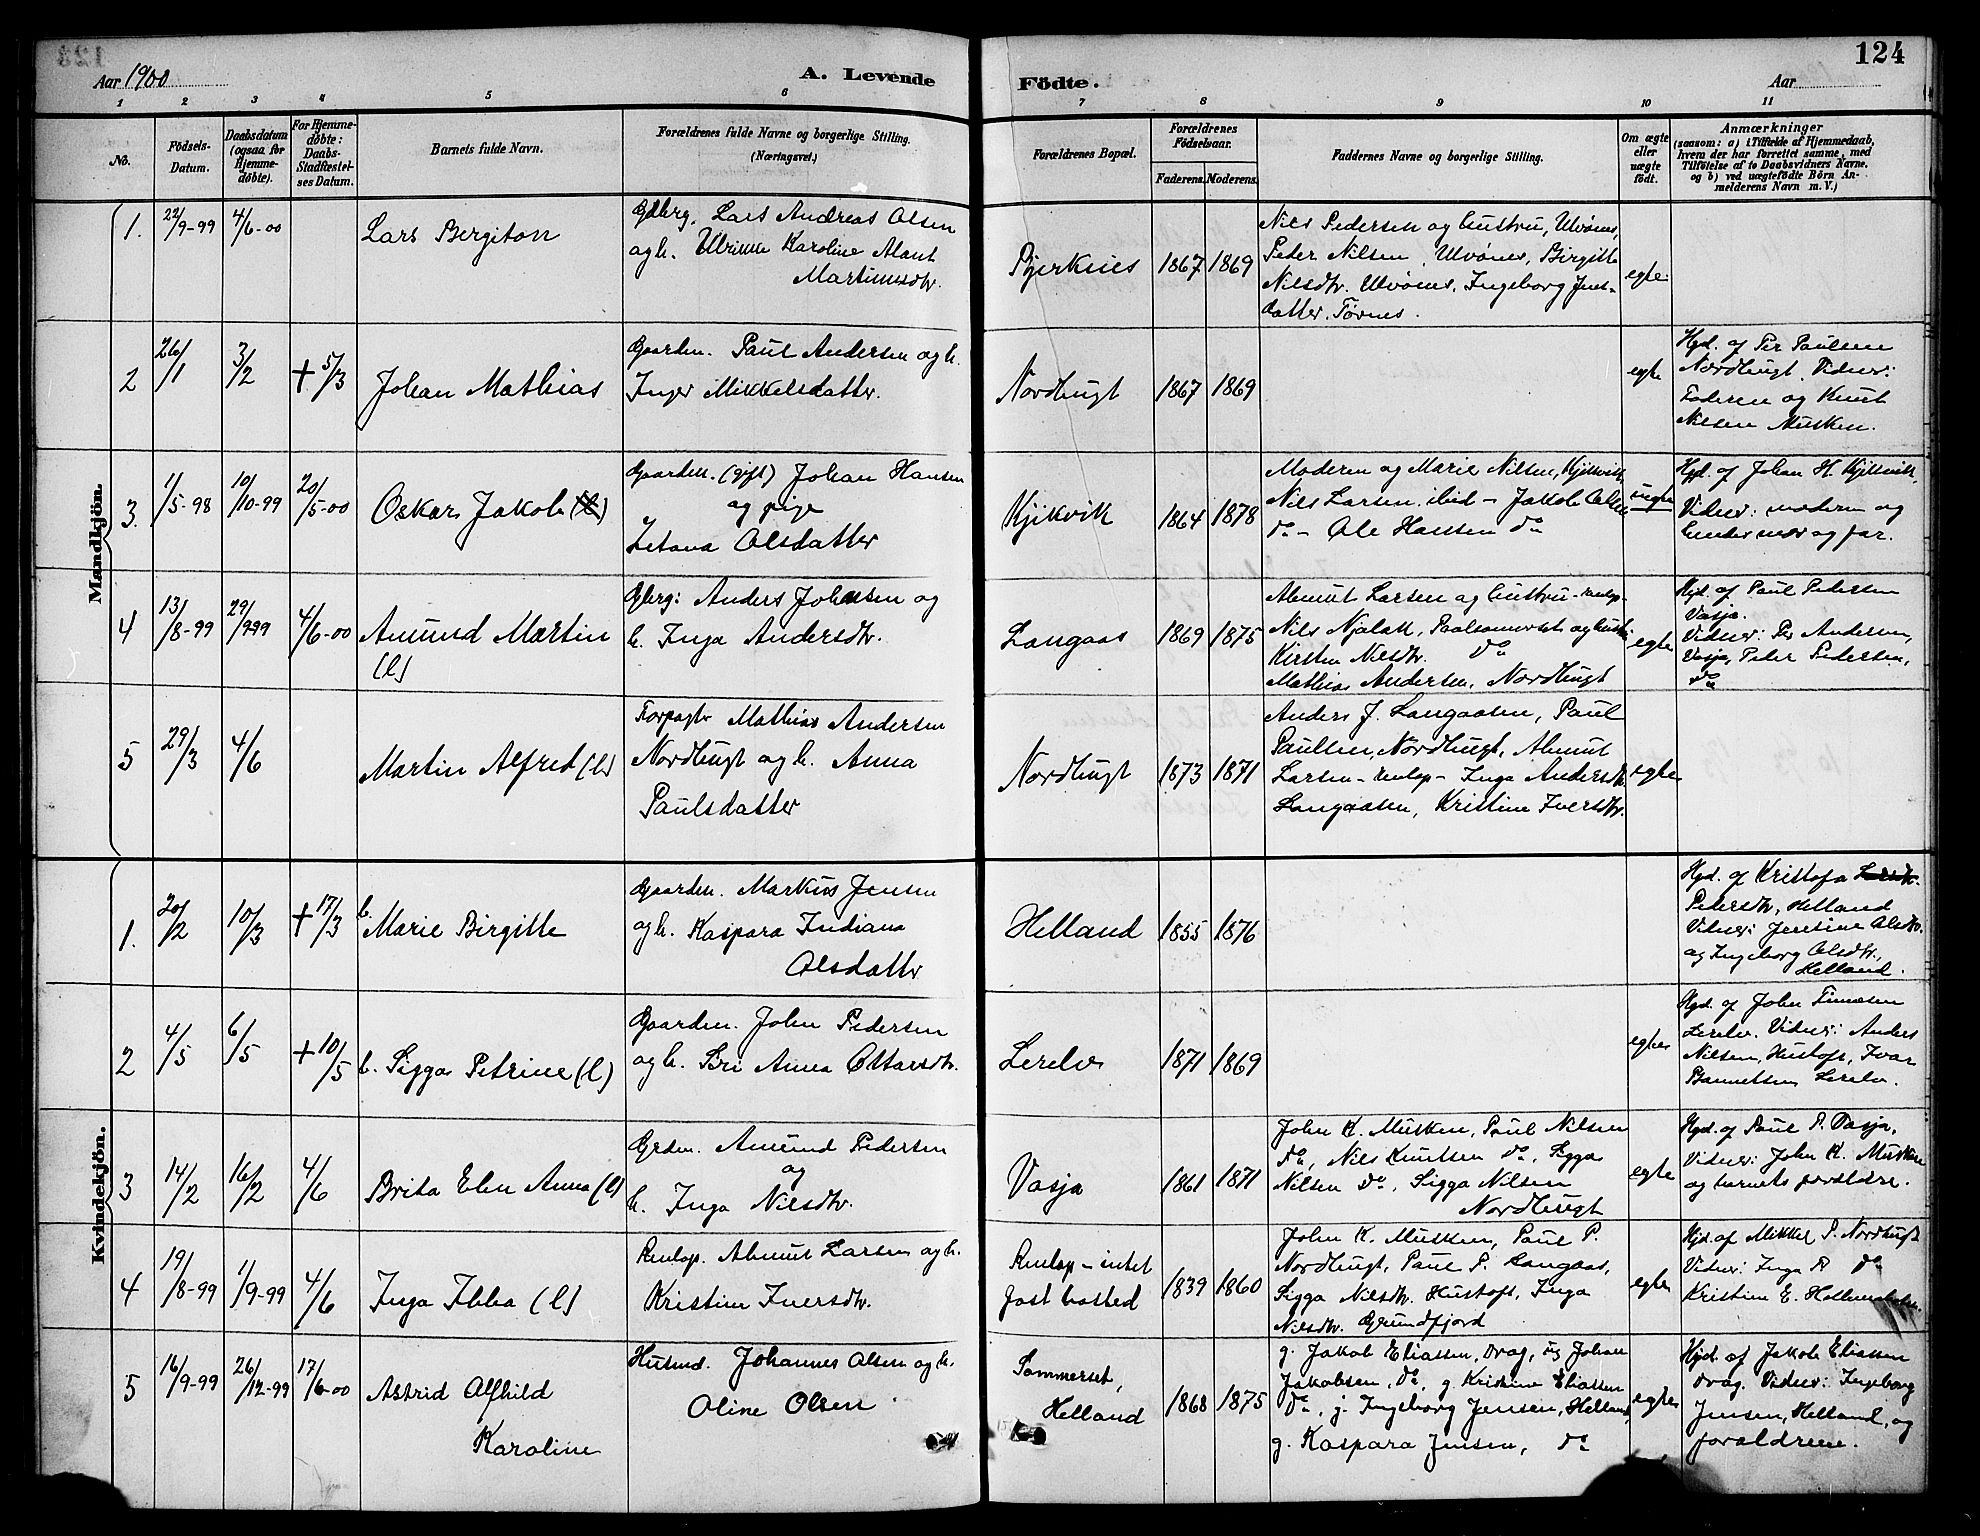 124
Aar 1900
A. Levende
Födte.
Aar
1 2 3 4 5 6 7 8 9 10 11
No.
Födsels-Datum.
Daabsdatum (ogsaa for Hjemme-döbte).
For Hjemme-döbte: Daabs-Stadfæstel-ses Datum.
Barnets fulde Navn.
Forældrenes fulde Navne og borgerlige Stilling.
(Næringsvei.)
Forældrenes Bopæl.
Forældrenes Födselsaar.
Faderens. Moderens.
Faddernes Navne og borgerlige Stilling.
Om ægte eller uægte födt.
Anmærkninger
(saasom: a) i Tilfælde af Hjemmedaab,
hvem der har forrettet samme, med
Tilföielse af to Daabsvidners Navne,
og b) ved uægtefödte Börn An-
melderens Navn m. V.)
Mandkjön.
1. 22/9-99 4/6-00
Lars Bergiton
Gdbrg. Lars Andreas Olsen
og h. Ulrikke Karoline Alant
Martinusdtr.
Bjerknes 1867 1869
Nils Pedersen og hustru, Ulvönes,
Peder Nilsen, Ulvönes, Birgitte
Nilsdtr. Ulvönes, Ingeborg Jens-
datter, Törnes.
egte.
2 26/1 3/2 + 5/3
Johan Mathias
Gaardm. Paul Andersen og h.
Inger Mikkelsdatter.
Nordbugt 1867 1869
egte
Hjd. af Per Paulsen
Nordbugt. Vidner:
Faderen og Knut
Nilsen Musken.
3. 1/5-98 10/10-99 20/5-00
Oskar Jakob (l)
Gaardm. (gift) Johan Hansen
og pige
Zetana Olsdatter
Kjikvik 1864 1878
Moderen og Marie Nilsen, Kjikvik
Nils Larsen, ibid - Jakob Olsen
do - Ole Hansen do
uegte
Hjd. af Johan H. Kjikvik,
Vidner: moderen og
hendes mor og far.
4 13/8-99 29/9-99 4/6-00
Amund Martin
(l)
Gbrg: Anders Johnsen og
h. Inga Andersdtr.
Langaas 1869 1875
Ahmut Larsen og hustru - renlap-
Nils Njalak, og hustru
Kirsten Nilsdtr. do
Mathias Andersen, Nordbugt
egte
Hjd. af Paul Pedersen
Vasja.
Vidner: Per Andersen,
Vasja, Peder Pedersen,
do
5 29/3 4/6
Martin Alfred (l)
Forpagtr Mathias Andersen
Nordbugt og h. Anna
Paulsdatter
Nordbugt 1873 1871
Anders J. Langaasen, Paul
Paulsen, Nordbugt, Ahmut
Larsen - renlap - Inga Andersdtr.
Langaasen, Kristine Iversdtr.
egte
Kvindekjön.
1. 20/2 10/3 + 17/3
b. Marie Birgitte
Gaardm. Markus Jensen
og h. Kaspara Indiana
Olsdattr
Helland 1855 1876
Hjd. af Kristofa
Pedersdtr, Helland
Vidner: Jensine Olsdtr.
og Ingeborg Olsdtr.,
Helland.
2 4/5 6/5 + 10/5
b. Sigga Petrine (l)
Gaardm. John Pedersen
og h. Siri Anna Ottarsdtr.
Lerelv 1871 1869
egte
Hjd. af John Simesen
Lerelv. Vidner: Anders
Nilsen, Hustoft, Ivar
Lerelv.
3 14/2 16/2 4/6
Brita Elen Anna (l)
Grdm. Amund Pedersen
og
h. Inga Nilsdtr.
Vasja 1861 1871
John K. Musken, Paul Nilsen
do, Nils Knutsen do, Sigga
Nilsen do, Sigga Nilsen
Nordbugt
egte
Hjd. af Paul P. Vasja,
Vidner: John K. Musken
og barnets forældre.
4 19/8-99 1/9-99 4/6
Inga Ibba (l)
Renlap. Ahmut Larsen og h.
Kristine Iversdtr.
Renlap - intet
fast bosted
1839 1860
John K. Musken, Paul P.
Nordbugt, Paul P. Langaas,
Sigga Nilsdtr. Hustoft, Inga
Nilsdtr. Grundfjord
egte
Hjd. af Mikkel P. Nordbugt
Vidner: Inga P. do
Kristine E.
5 16/9-99 26/12-99 17/6-00
Astrid Alfhild
Karoline
Husmd. Johannes Olsen og h.
Oline Olsen.
Sommerset,
Helland
1868 1875
g. Jakob Eliassen, Drag, ug Johan
Jakobsen, do, g. Kristine Eliassen
do, g. Ingeborg Jensen, Helland,
g. Kaspara Jensen, do
egte
Hjd. af Jakob Eliassen
Drag. Vidner: Ingeborg
Jensen, Helland, og
forældrene.